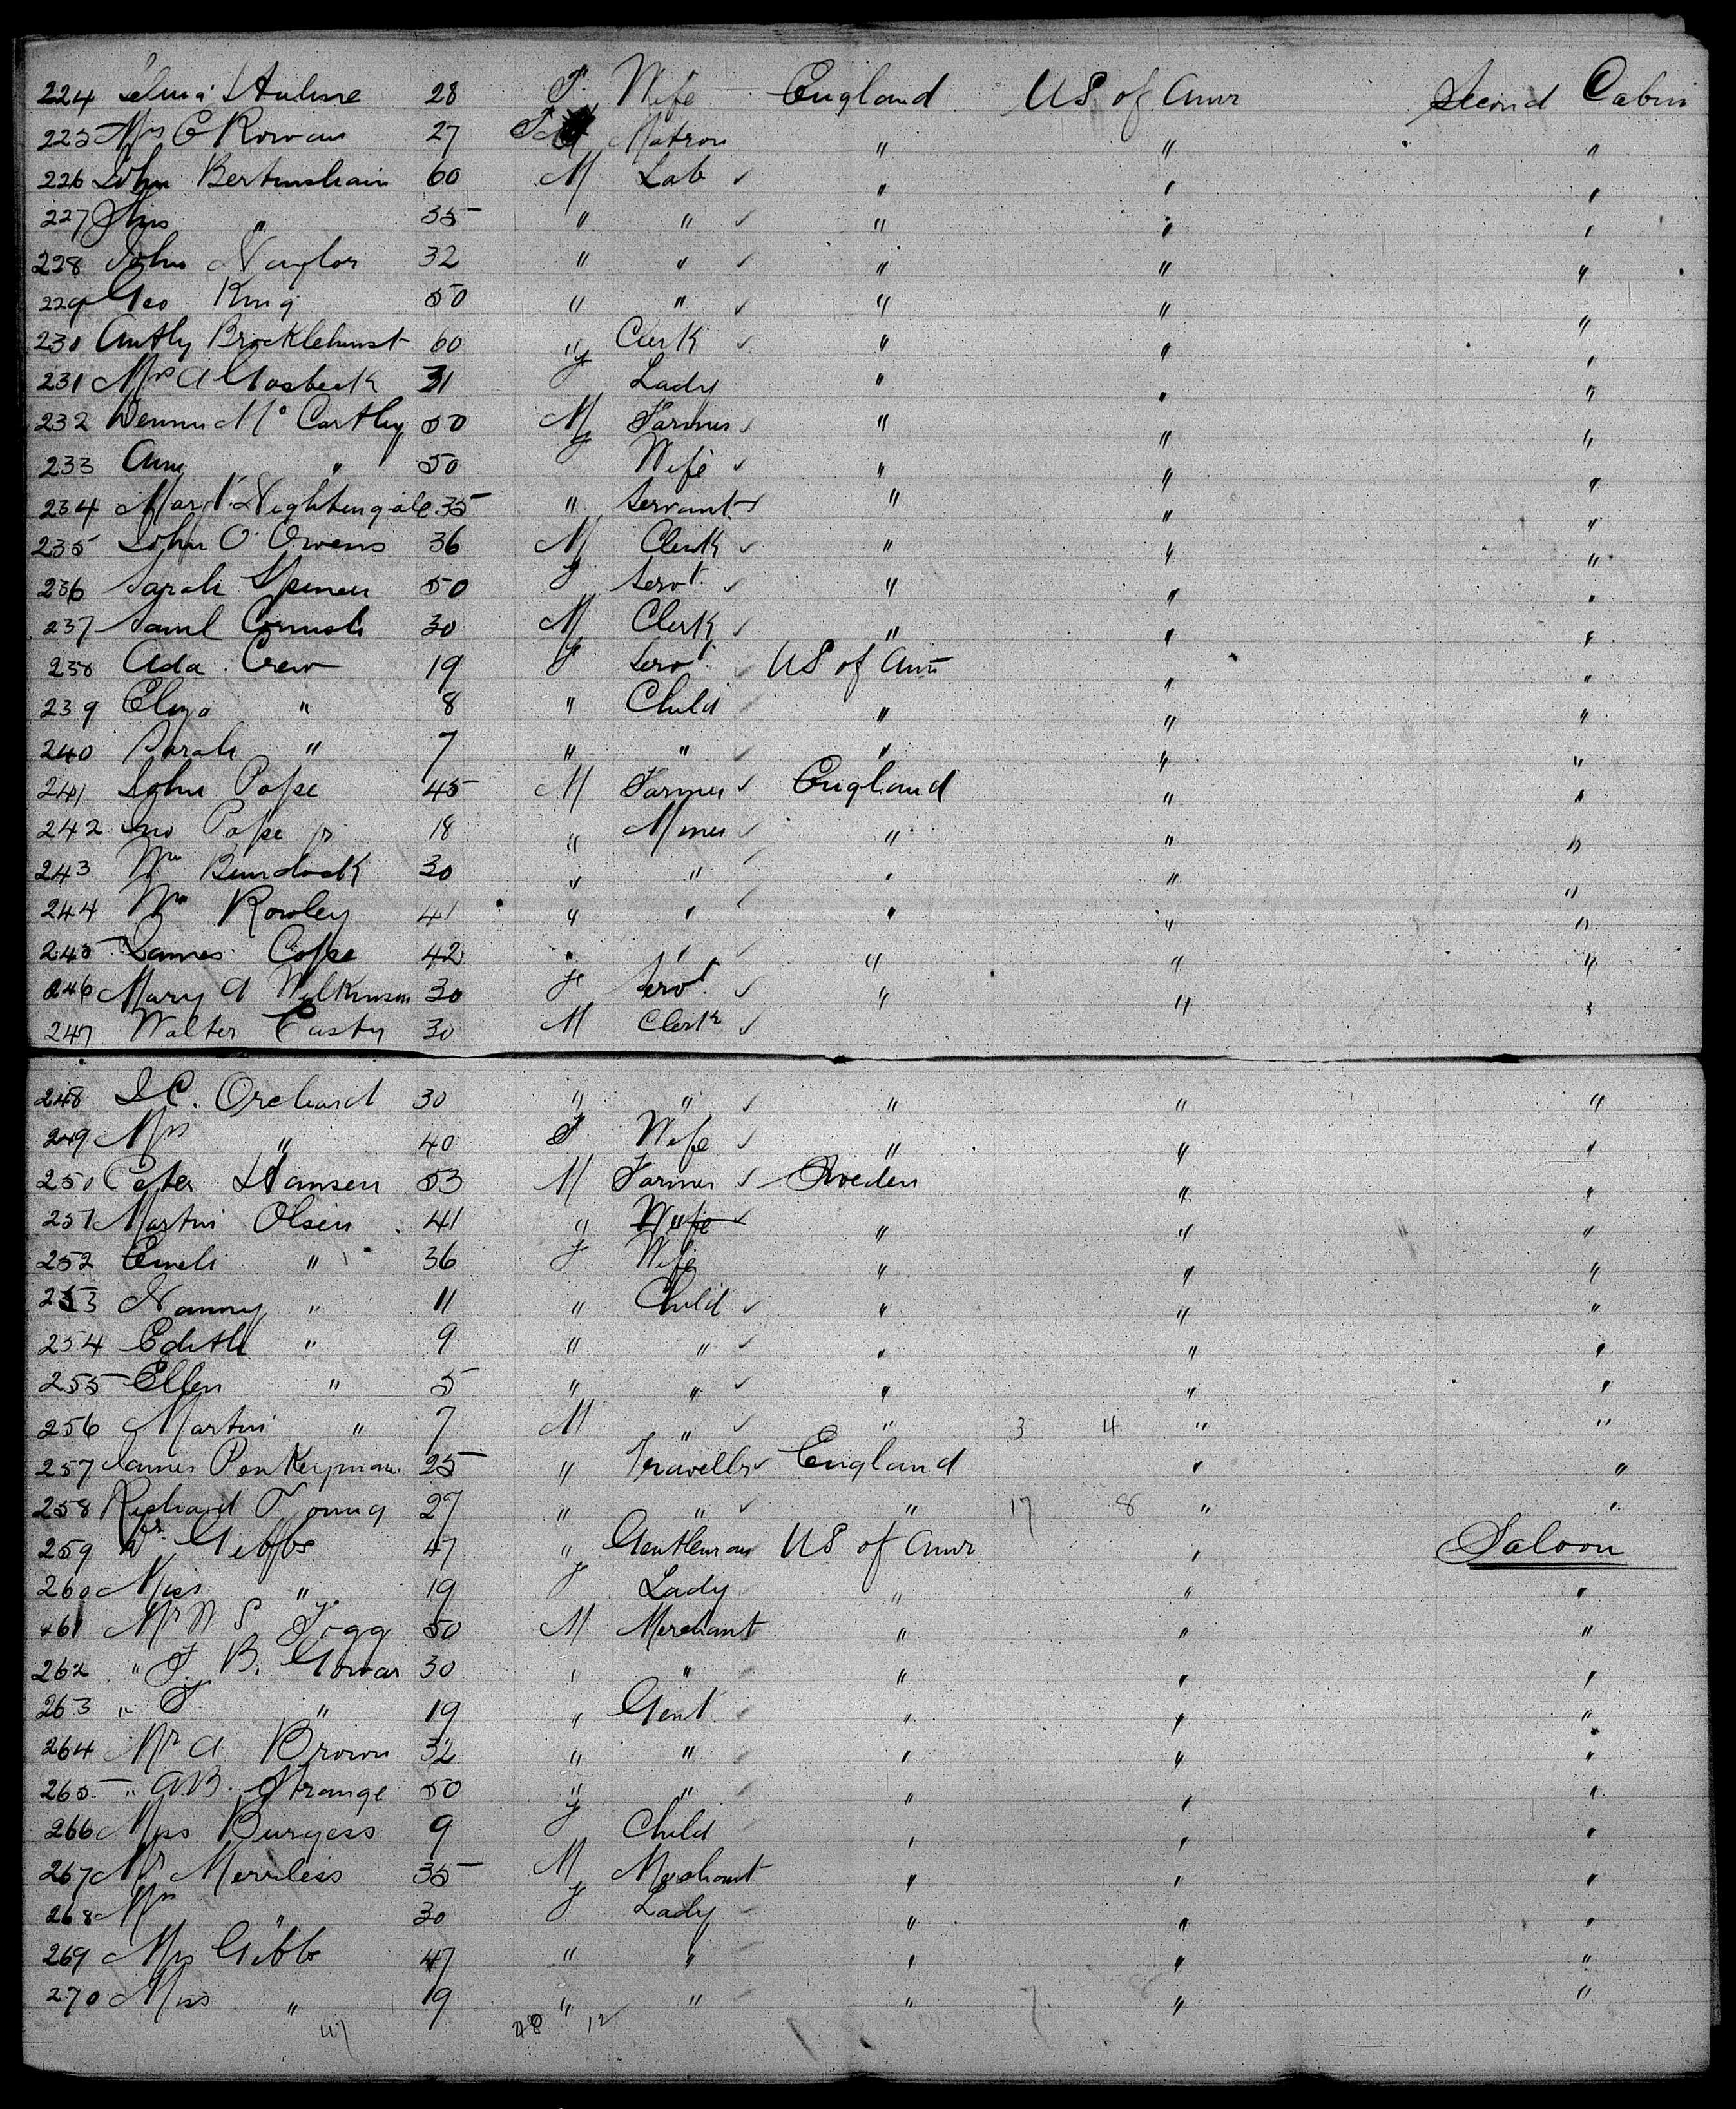 224 Selma Hulme 28 F. Wife England US of Amr Second Cabin
225 Mrs C Rowan 27 F Matron " " "
226 John Bertinshaw 60 M Lab ✓ " " "
227 Jhno " 35 " " ✓ " " "
228 John Naylor 32 " " ✓ " " "
229 Geo King 50 " " ✓ " " "
230 Anthy Brocklehurst 60 " Clerk ✓ " " "
231 Mrs A Gosbeck 31 F Lady " " "
232 Dennis Mc Carthy 50 M Farmer ✓ " " "
233 Ann " 50 F Wife ✓ " " "
234 Mart Nightingale 35 " Servant ✓ " " "
235 John O Owens 36 M Clerk ✓ " " "
236 Sarah Spencer 50 F Servt. ✓ " " "
237 Saml Cornish 30 M Clerk ✓ " " "
238 Ada Crew 19 F Servt. ✓ US of Am " "
239 Eliza " 8 " Child ✓ " " "
240 Sarah " 7 " " ✓ " " "
241 John Pope 45 M Farmer ✓ England " "
242 Jno Pope jr 18 " Miner ✓ " " "
243 Wm Burdock 30 " " ✓ " " "
244 Wm Rowley 41 " " ✓ " " "
245 James Cope 42 " " ✓ " " "
246 Mary A Wilkinson 30 F Servt. ✓ " " "
247 Walter Easty 30 M Clerk ✓
248 J C. Orchard 30 " " ✓ " " "
249 Mrs " 40 F Wife ✓ " " "
250 Peter Hansen 53 M Farmer ✓ Sweden " "
251 Martin Olsen 41 " Wife ✓ " " "
252 Emeli " 36 F Wife " " "
253 Nanny " 11 " Child ✓ " " "
254 Edith " 9 " " ✓ " " "
255 Ellen " 5 " " ✓ " " "
256 Martin " 7 M " ✓ " 3 4 " "
257 James Penkeyman 25 " Traveller ✓ England " "
258 Richard Young 27 " " ✓ " 17 8 " "
259 Dr. Gibbs 47 " Gentleman US of Amr " Saloon
260 Miss " 19 F Lady " " "
261 Mr W S Fogg 50 M Merchant " " "
262 " F. B. Gowar 30 " " ✓ " " "
263 " F. " 19 " Gent ✓ " " "
264 Mr A Brown 32 " " ✓ " " "
265 " A.B. Strange 50 " " ✓ " " "
266 Miss Burgess 9 F Child ✓ " " "
267 Mr Merrileis 35 M Merchant " " "
268 Mrs " 30 F Lady ✓ " " "
269 Mrs Gibb 47 " " ✓ " " "
270 Miss " 19 " " ✓ " 7 " "
47 48 12